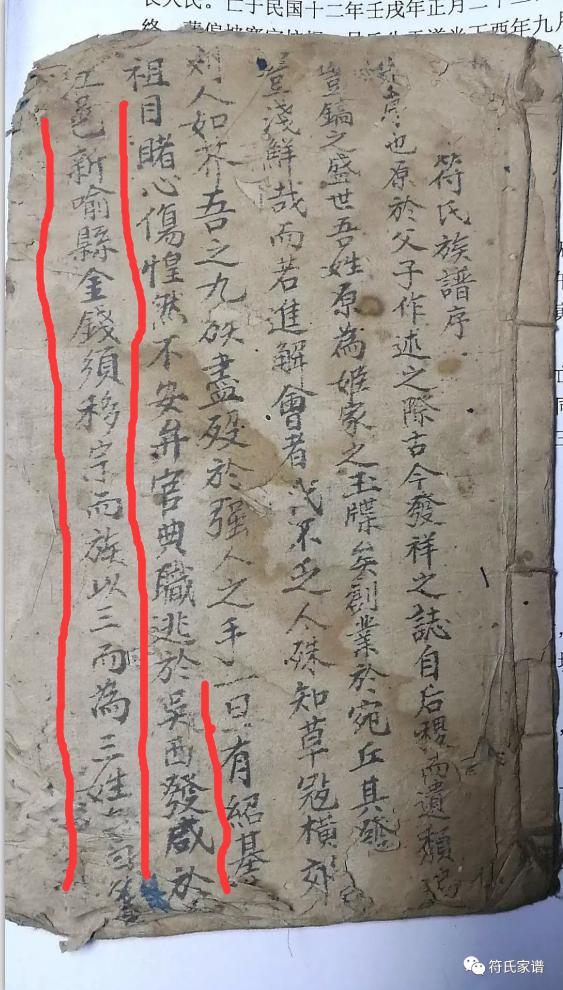 符氏族譜序
也原於父子作述之際古今發祥之誌自后稷而遺類
鎬之盛世吾姓原為姬家之玉牒矣創業於宛丘其發
淺鮮哉而若進解會者代不乏人殊知草寇橫
人如芥吾之九族盡殁於强人之手只有紹基
祖目睹心傷惶然不安弁官典職逃於吳西發感於
邑新喻縣金錢須移宗而族以三而為三姓
长人民。亡于民国十二年壬戌年正月二十二
符氏家谱